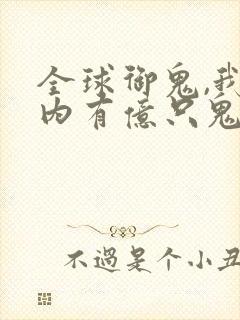 全球御鬼,我
内有億只鬼
不過是个小丑